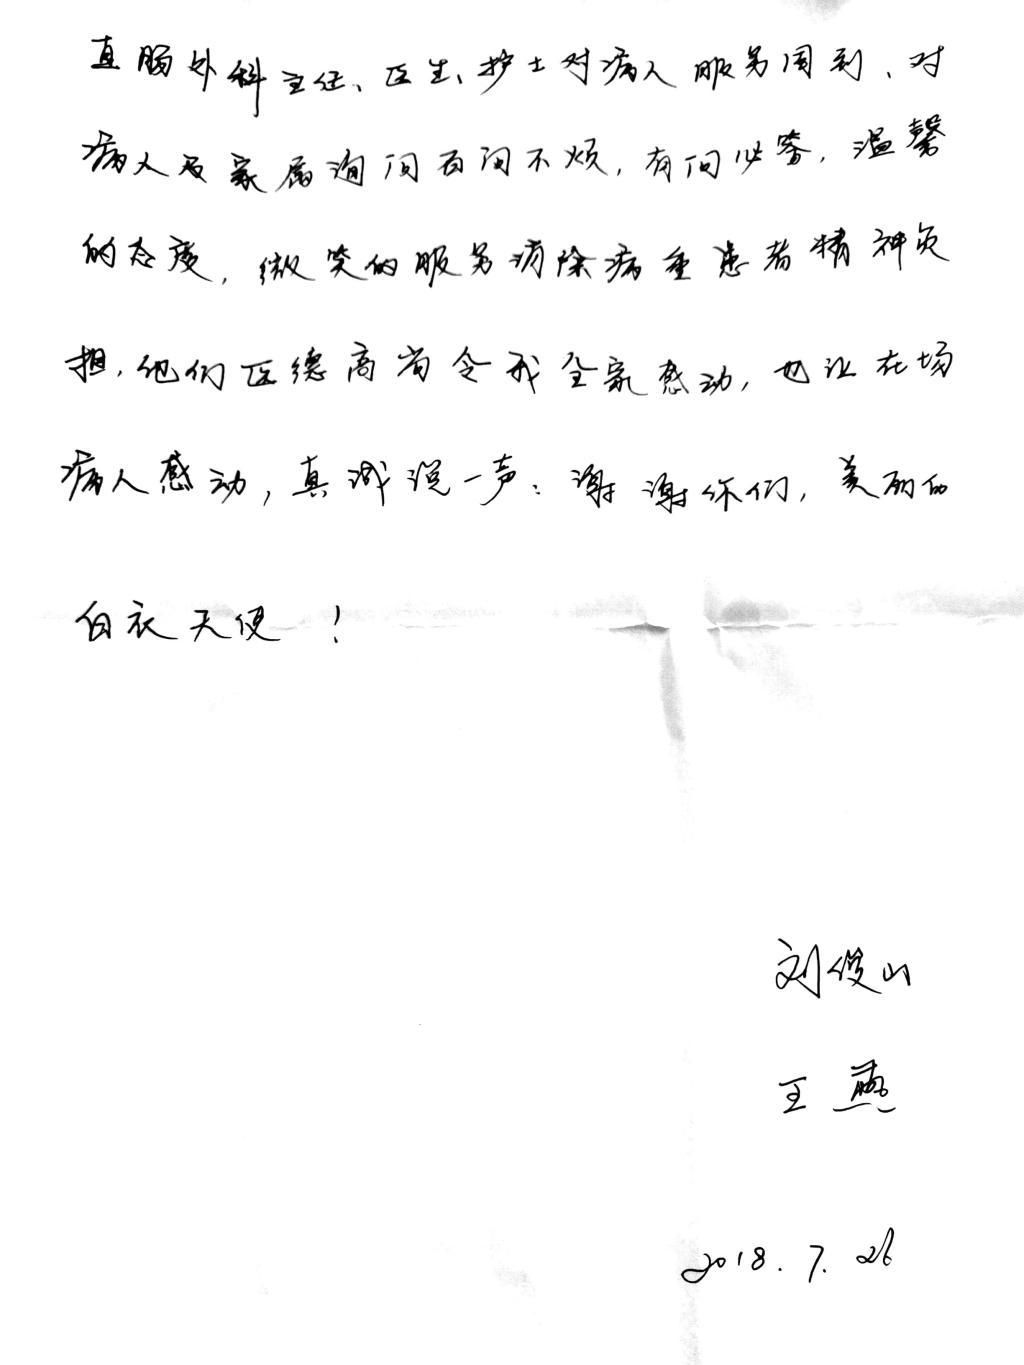 直肠外科主任、医生、护士对病人服务周到、对
病人及家属询问百问不烦，有问必答，温馨
的态度，微笑的服务消除病重患者精神负
担，他们医德高尚令我全家感动，也让在场
病人感动，真诚说一声：谢谢你们，美丽的
白衣天使！
刘俊山
王燕
2018.7.26